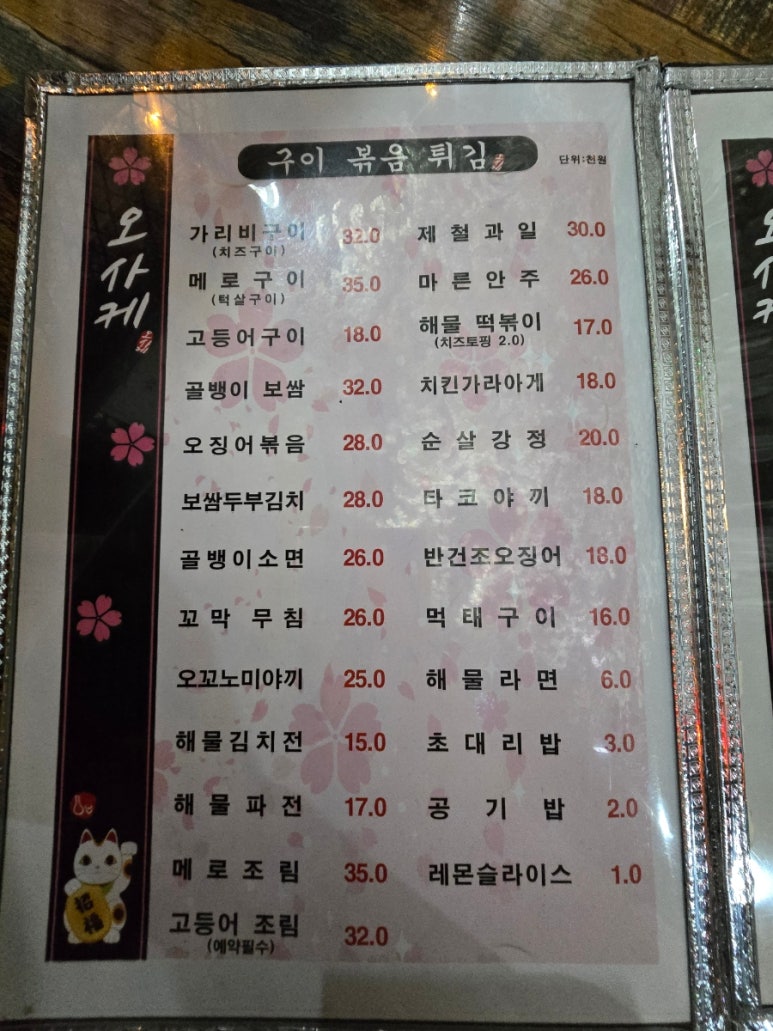 구이 볶음 튀김
단위:천원
오사케
가리비구이 32.0
(치즈구이)
메로구이 35.0
(턱살구이)
고등어구이 18.0
골뱅이 보쌈 32.0
오징어볶음 28.0
보쌈두부김치 28.0
골뱅이소면 26.0
꼬막무침 26.0
오꼬노미야끼 25.0
해물김치전 15.0
해물파전 17.0
메로조림 35.0
고등어 조림 32.0
(예약필수)
제철과일 30.0
마른안주 26.0
해물 떡볶이 17.0
(치즈토핑 2.0)
치킨가라아게 18.0
순살강정 20.0
타코야끼 18.0
반건조오징어 18.0
먹태구이 16.0
해물라면 6.0
초대리밥 3.0
공기밥 2.0
레몬슬라이스 1.0
招福